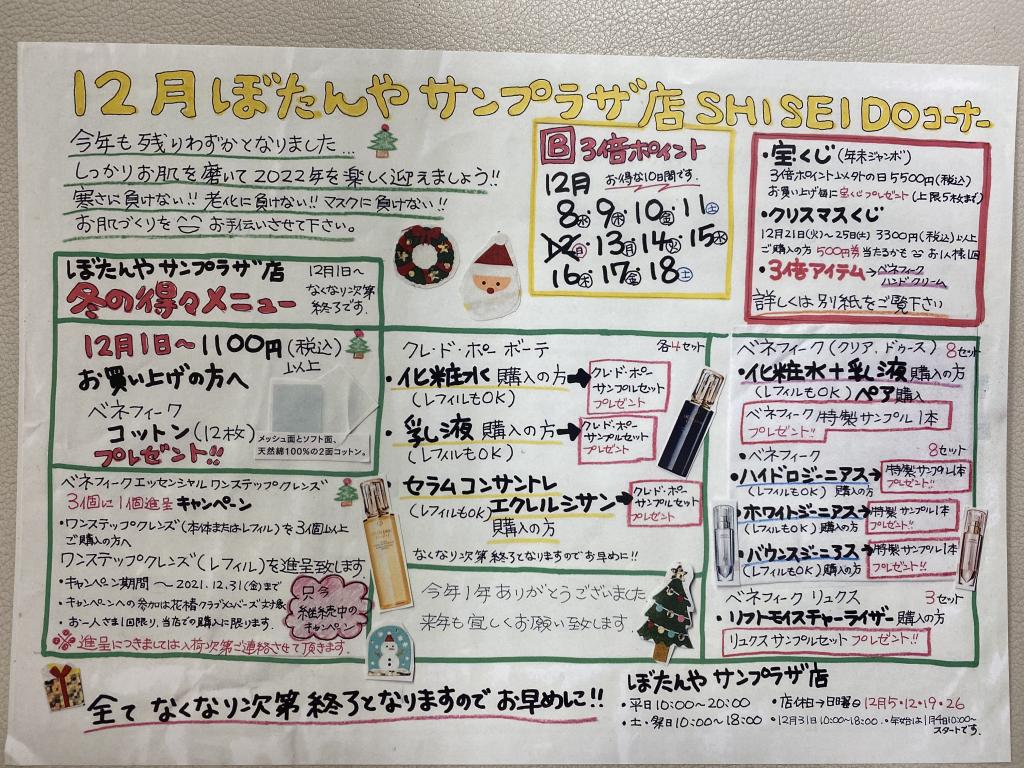 12月 ぼたんや サンプラザ店 SHISEIDOコーナー
今年も残りわずかとなりました…
しっかりお肌を磨いて2022年を楽しく迎えましょう!!
寒さに負けない!! 老化に負けない!! マスクに負けない!!
お肌づくりをお手伝いさせて下さい。
B 3倍ポイント
12月 お得な10日間です。
8水・9木・10金・11土
12日・13月・14火・15水
16木・17金・18土
・宝くじ(年末ジャンボ)
3倍ポイント以外の日5500円(税込)
お買い上げ毎に宝くじプレゼント(上限5枚まで)
・クリスマスくじ
12月21日(火)〜25日(土) 3300円(税込)以上
ご購入の方 500円券当たるかも お1人様1回
・3倍アイテム→ベネフィーク
ハンドクリーム
詳しくは別紙をご覧下さい
ぼたんや サンプラザ店
冬の得々メニュー
12月1日〜
なくなり次第
終了です。
12月1日〜1100円(税込)
以上
お買い上げの方へ
ベネフィーク
コットン(12枚)
プレゼント!!
メッシュ面とソフト面、
天然綿100%の2面コットン。
ベネフィークエッセンシャル ワンステップクレンズ
3個に1個進呈キャンペーン
・ワンステップクレンズ(本体またはレフィル)を3個以上
ご購入の方へ
ワンステップクレンズ(レフィル)を進呈致します
・キャンペーン期間 〜2021.12.31(金)まで
・キャンペーンへの参加は花椿クラブメンバーズ対象
・お一人さま1回限り、当店での購入に限ります。
※進呈につきましては入荷次第ご連絡させて頂きます。
只今
継続中の
キャンペーン
クレ・ド・ポー ボーテ 各4セット
・化粧水 購入の方→
(レフィルもOK)
クレ・ド・ポー
サンプルセット
プレゼント
・乳液 購入の方→
(レフィルもOK)
クレ・ド・ポー
サンプルセット
プレゼント
・セラムコンサントレ
(レフィルもOK)エクレルシサン→
購入の方
クレ・ド・ポー
サンプルセット
プレゼント
なくなり次第終了となりますのでお早めに!!
今年1年ありがとうございました
来年も宜しくお願い致します
ベネフィーク(クリア、ドゥース) 8セット
・化粧水+乳液 購入の方
(レフィルもOK) ペア購入
ベネフィーク特製サンプル1本
プレゼント!!
・ベネフィーク 8セット
・ハイドロジーニアス→特製サンプル1本
(レフィルもOK) 購入の方 プレゼント!!
・ホワイトジーニアス→特製サンプル1本
(レフィルもOK) 購入の方 プレゼント!!
・バウンスジーニアス→特製サンプル1本
(レフィルもOK) 購入の方 プレゼント!!
ベネフィーク リュクス 3セット
・リフトモイスチャーライザー購入の方
リュクスサンプルセット プレゼント!!
全て なくなり次第 終了となりますので お早めに!!
ぼたんや サンプラザ店
・平日10:00〜20:00 ・店休日→日曜日12月5・12・19・26
・土・祭日10:00〜18:00 ・12月31日10:00〜18:00 ・年始は1月4日10:00〜
スタートです。